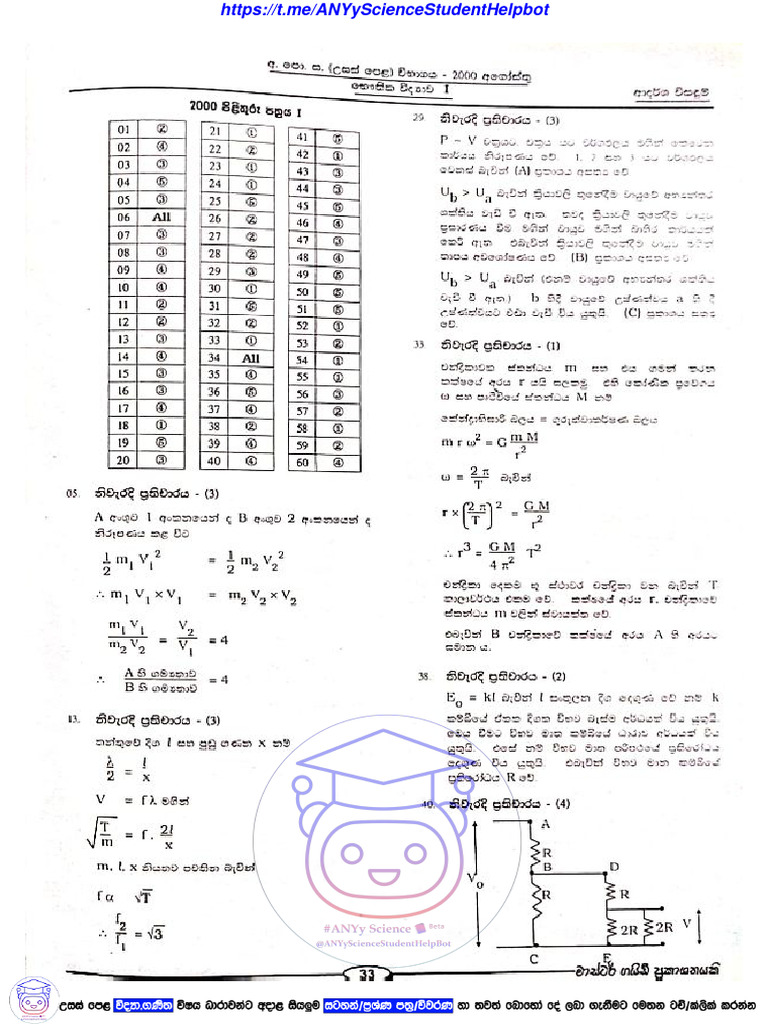 https://t.me/ANYyScienceStudentHelpbot
අ. පො. ස. (උසස් පෙළ) විභාගය - 2000 අගෝස්තු
භෞතික විද්‍යාව I
ආදර්ශ විසඳුම්
2000 පිළිතුරු පත්‍රය I
01 ②
02 ④
03 ③
04 ⑤
05 ③
06 All
07 ③
08 ③
09 ④
10 ④
11 ②
12 ②
13 ③
14 ④
15 ③
16 ③
17 ④
18 ①
19 ⑤
20 ③
21 ①
22 ②
23 ①
24 ①
25
26 ②
27 ②
28 ②
29 ③
30 ①
31 ⑤
32 ②
33 ①
34 All
35 ④
36 ⑤
37 ④
38 ②
39 ④
40 ④
41 ⑤
42 ①
43 ③
44 ③
45 ⑤
46 ④
47 ③
48 ④
49 ⑤
50 ⑤
51 ⑤
52 ①
53 ②
54 ①
55
56
57 ②
58 ①
59 ②
60 ④
05. නිවැරදි ප්‍රතිචාරය - (3)
A අංශුව 1 අංකනයෙන් ද B අංශුව 2 අංකනයෙන් ද
නිරූපණය කළ විට
½ m₁ V₁² = ½ m₂ V₂²
∴ m₁ V₁ × V₁ = m₂ V₂ × V₂
m₁ V₁ / m₂ V₂ = V₂ / V₁ = 4
∴ A හි ගම්‍යතාව / B හි ගම්‍යතාව = 4
13. නිවැරදි ප්‍රතිචාරය - (3)
තන්තුවේ දිග l සහ පුඩු ගණන x නම්
λ/2 = l/x
V = fλ මගින්
√(T/m) = f . 2l/x
m, l, x නියතව පවතින බැවින්
f α √T
∴ f₂/f₁ = √3
29. නිවැරදි ප්‍රතිචාරය - (3)
P - V වක්‍රයට වක්‍රය යට වර්ගඵලය මගින් කෙරෙන
කාර්යය නිරූපණය වේ. 1, 2 සහ 3 යට වර්ගඵලය
වෙනස් බැවින් (A) ප්‍රකාශය අසත්‍ය වේ
U_b > U_a බැවින් ක්‍රියාවලි තුනේදීම වායුවේ අභ්‍යන්තර
ශක්තිය වැඩි වී ඇත. තවද ක්‍රියාවලි තුනේදීම වායුව
ප්‍රසාරණය වීම මගින් වායුව මගින් බාහිර කාර්යයක්
කෙරී ඇත. එබැවින් ක්‍රියාවලි තුනේදීම වායුව මගින්
තාපය අවශෝෂණය වේ. (B) ප්‍රකාශය සත්‍ය වේ
U_b > U_a බැවින් (එනම් වායුවේ අභ්‍යන්තර ශක්තිය
වැඩි වී ඇත.) b හිදී වායුවේ උෂ්ණත්වය a හි දී
උෂ්ණත්වයට වඩා වැඩි විය යුතුයි. (C) ප්‍රකාශය සත්‍ය
වේ.
33. නිවැරදි ප්‍රතිචාරය - (1)
චන්ද්‍රිකාවක ස්කන්ධය m සහ එය ගමන් කරන
කක්ෂයේ අරය r යයි සලකමු. එහි කෝණික ප්‍රවේගය
ω සහ පෘථිවියේ ස්කන්ධය M නම්
කේන්ද්‍රාභිසාරී බලය = ගුරුත්වාකර්ෂණ බලය
m r ω² = G m M / r²
ω = 2 π / T බැවින්
r × (2 π / T)² = G M / r²
∴ r³ = G M / 4 π² T²
චන්ද්‍රිකා දෙකම භූ ස්ථාවර චන්ද්‍රිකා වන බැවින් T
කාලාවර්ථය එකම වේ. කක්ෂයේ අරය r, චන්ද්‍රිකාවේ
ස්කන්ධය m වලින් ස්වායත්ත වේ.
එබැවින් B චන්ද්‍රිකාවේ කක්ෂයේ අරය A හි අරයට
සමාන ය.
38. නිවැරදි ප්‍රතිචාරය - (2)
E₀ = kl බැවින් l සංතුලන දිග දෙගුණ වේ නම් k
කම්බියේ ඒකක දිගක විභව බැස්ම අර්ධයක් විය යුතුයි.
මෙය වීමට විභව මාන කම්බියේ ධාරාව අර්ධයක් විය
යුතුයි. එසේ නම් විභව මාන පරිපථයේ ප්‍රතිරෝධය
දෙගුණ විය යුතුයි. එබැවින් විභව මාන කම්බියේ
ප්‍රතිරෝධය R වේ.
40. නිවැරදි ප්‍රතිචාරය - (4)
A
R
B D
V₀ R R
2R 2R V
C E
#ANYy Science Beta
@ANYyScienceStudentHelpBot
33
මාස්ටර් ගයිඩ් ප්‍රකාශනයකි
උසස් පෙළ විද්‍යා,ගණිත විෂය ධාරාවන්ට අදාළ සියලුම සටහන්/ප්‍රශ්ණ පත්‍ර/විවරණ හා තවත් බොහෝ දේ ලබා ගැනීමට මෙතන ටච්/ක්ලික් කරන්න